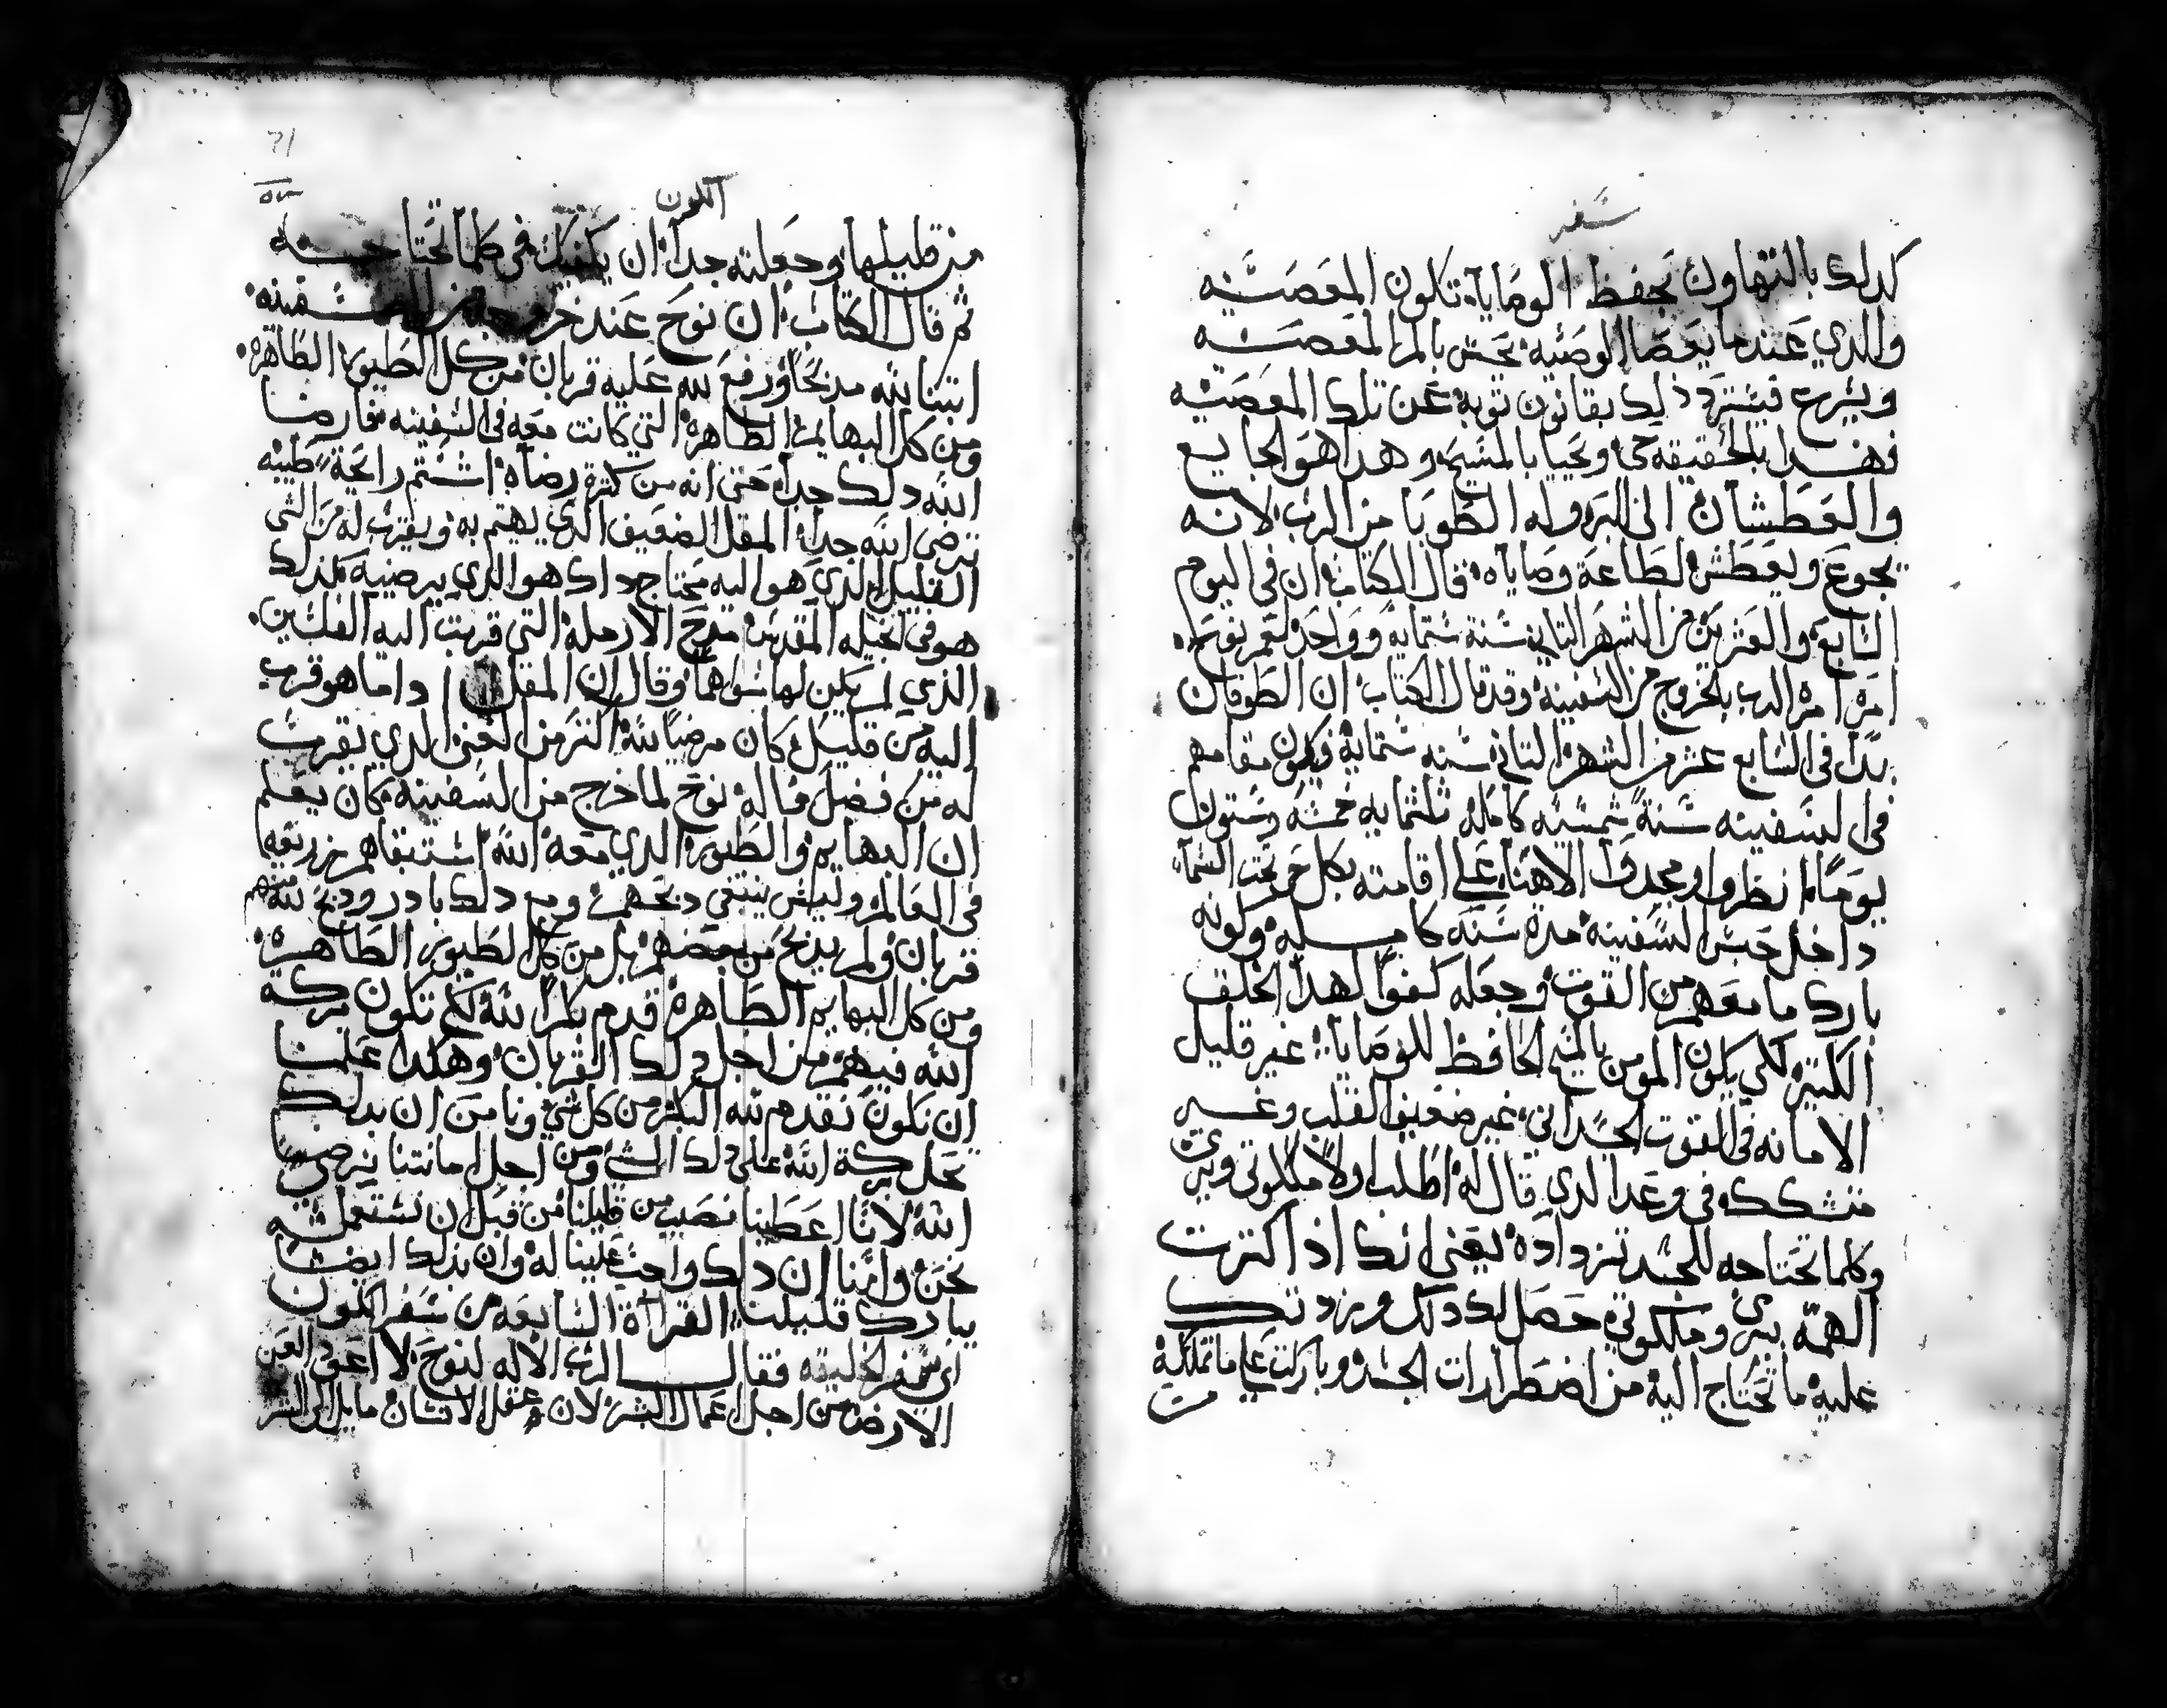 سفر
كدلك بالتهاون بحفظ الوصايا تكون المعصيه
والدي عندما يعصا الوصيه يحس بالم المعصيه
ويسرع فيسترد دلك بقانون توبه عن تلك المعصيه
فهدا بالحقيقه حي ويحيا بالمسيح وهدا هو الجايع
والعطشان الى البر وله الطوبا من الرب لانه
يجوع ويعطش لطاعة وصاياه قال الكتاب ان في اليوم
السابع والعشرين من الشهر التاني سنة ستمايه وواحد لعمر نوح
امره الرب بالخروج من السفينه وقد قال الكتاب ان الطوفان
بدا في السابع عشر من الشهر التاني سنه ستمايه فيكون مقامهم
في السفينه سنة شمسيه كامله تلتمايه خمسه وستون
يوما انظروا ومجدوا الاهنا على اقامته بكل حي تحت السما
داخل حبس السفينه مده سنه كامله وكونه
بارك ما معهم من القوت وجعله كفوا لهدا الخلق
الكتير لكي يكون المومن بالمسيح الحافظ للوصايا غير قليل
الامانه في القوت الجسداني غير ضعيف القلب وغير
متشكك في وعد الدي قال له اطلب اولا ملكوتي وبري
وكلما تحتاجه للجسد تزداده يعني انك اذا كترت
الهمه ببري وملكوتي حصل لك دلك وزدتك
عليه ما تحتاج اليه من اضطرارات الجسد وباركت على ما تملكه
من
الكون
من قليلها وجعلته جدا ان يكفيك في كلما تحتاجه
ثم قال الكتاب ان نوح عند خروجه من السفينه
ابتنا لله مدبحا ورفع لله عليه قربان من كل الطيور الطاهره
ومن كل البهايم الطاهره التي كانت معه في السفينه فارضا
الله دلك جدا حتى انه من كترة رضاه اشتم رايحة طيبه
ترضي الله جدا المقل الضعيف الدي يهتم به ويقرب له من الشي
القليل الدي هو اليه محتاج داك هو الدي يرضيه كدلك
هو في انجيله المقدس مدح الارمله التي قربت اليه الفلسين
الذي لم يكن لها سواهما وقال ان المقل ادا ما هو قرب
اليه من قليل كان مرضيا لله اكتر من الغني الدي يقرب
له من فضل ماله نوح لما خرج من السفينه كان يعلم
ان البهايم والطيور الدي معه الله استبقاهم زريعه
في العالم وليس ينبغي دبحهم ومع دلك بادر ودبح لله منهم
قربان ولم يدبح من بعضهم بل من كل الطيور الطاهره
ومن كل البهايم الطاهره قدم بكرا لله لكي تكون بركة
الله فيهم من اجل دلك القربان وهكدا علمنا
ان نكون نقدم لله البكر من كل شي ونامن ان بدلك
تحل بركة الله على دلك الشي ومن اجل امانتنا نرضي
الله لاننا اعطينا نصيب من قليلنا من قبل ان نستعمله
نحن وامنا ان دلك واجب علينا له وان بدلك ايضا
يبارك قليلنا القراة السابعه من سفر الكون
اي سفر الخليقه فقال الرب الاله لنوح لا اعود العن
الارض من اجل اعمال البشر لان عقل الانسان مايل الى الشر